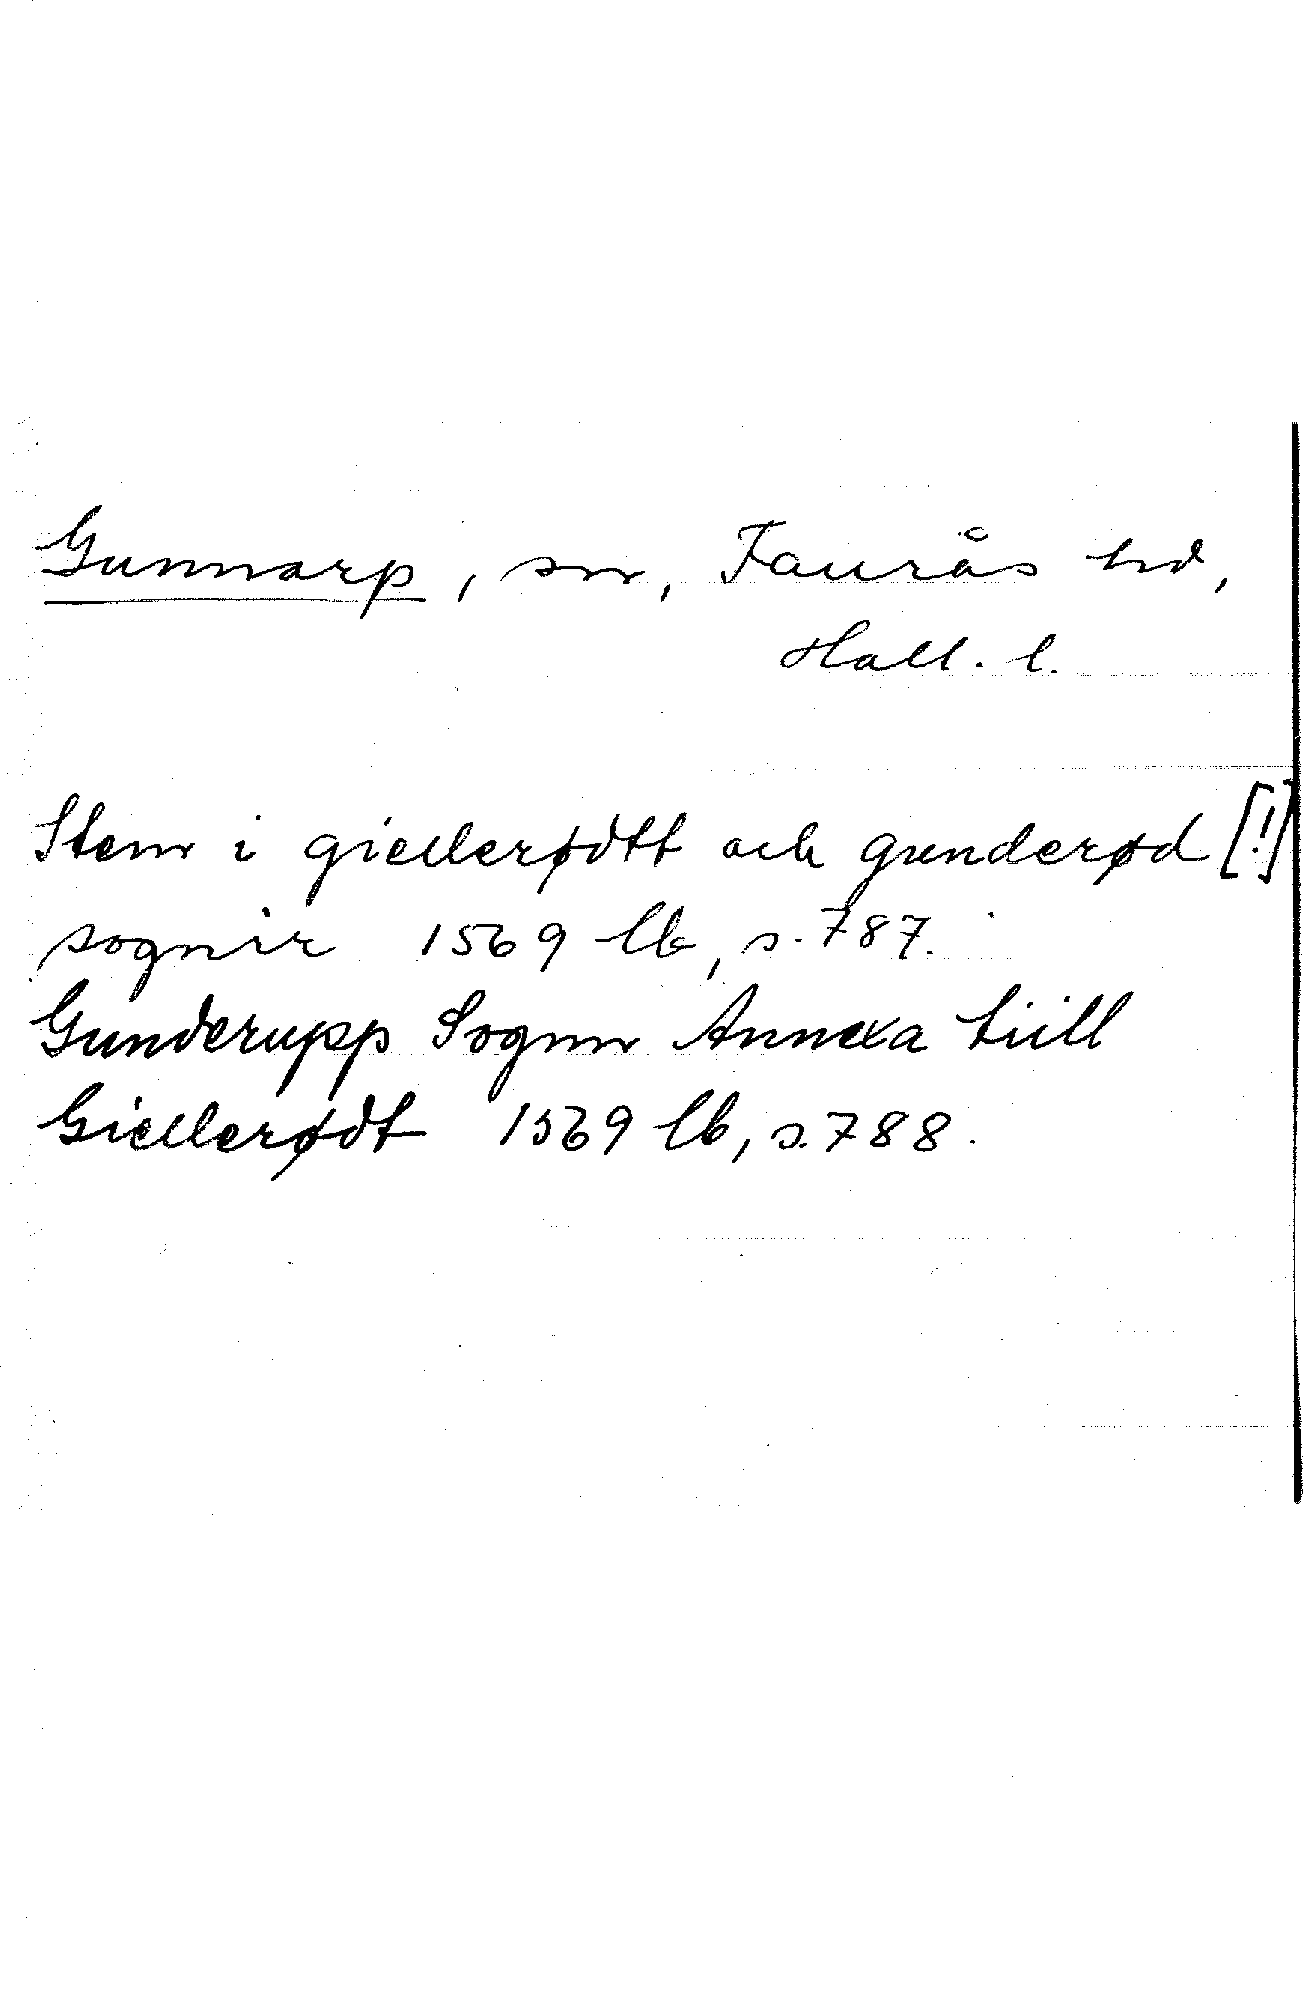 Gunnarp, sn, Faurås hd,
Hall. l.
Stenn i giellerødtt och gunderød [!]
sognir 1569 lb, s. 787.
Gunderupp Sognn Annexa tiill
Giellerødt 1569 lb, s. 788.